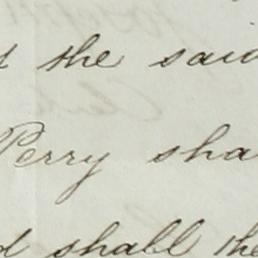 the said
Perry sha
shall the